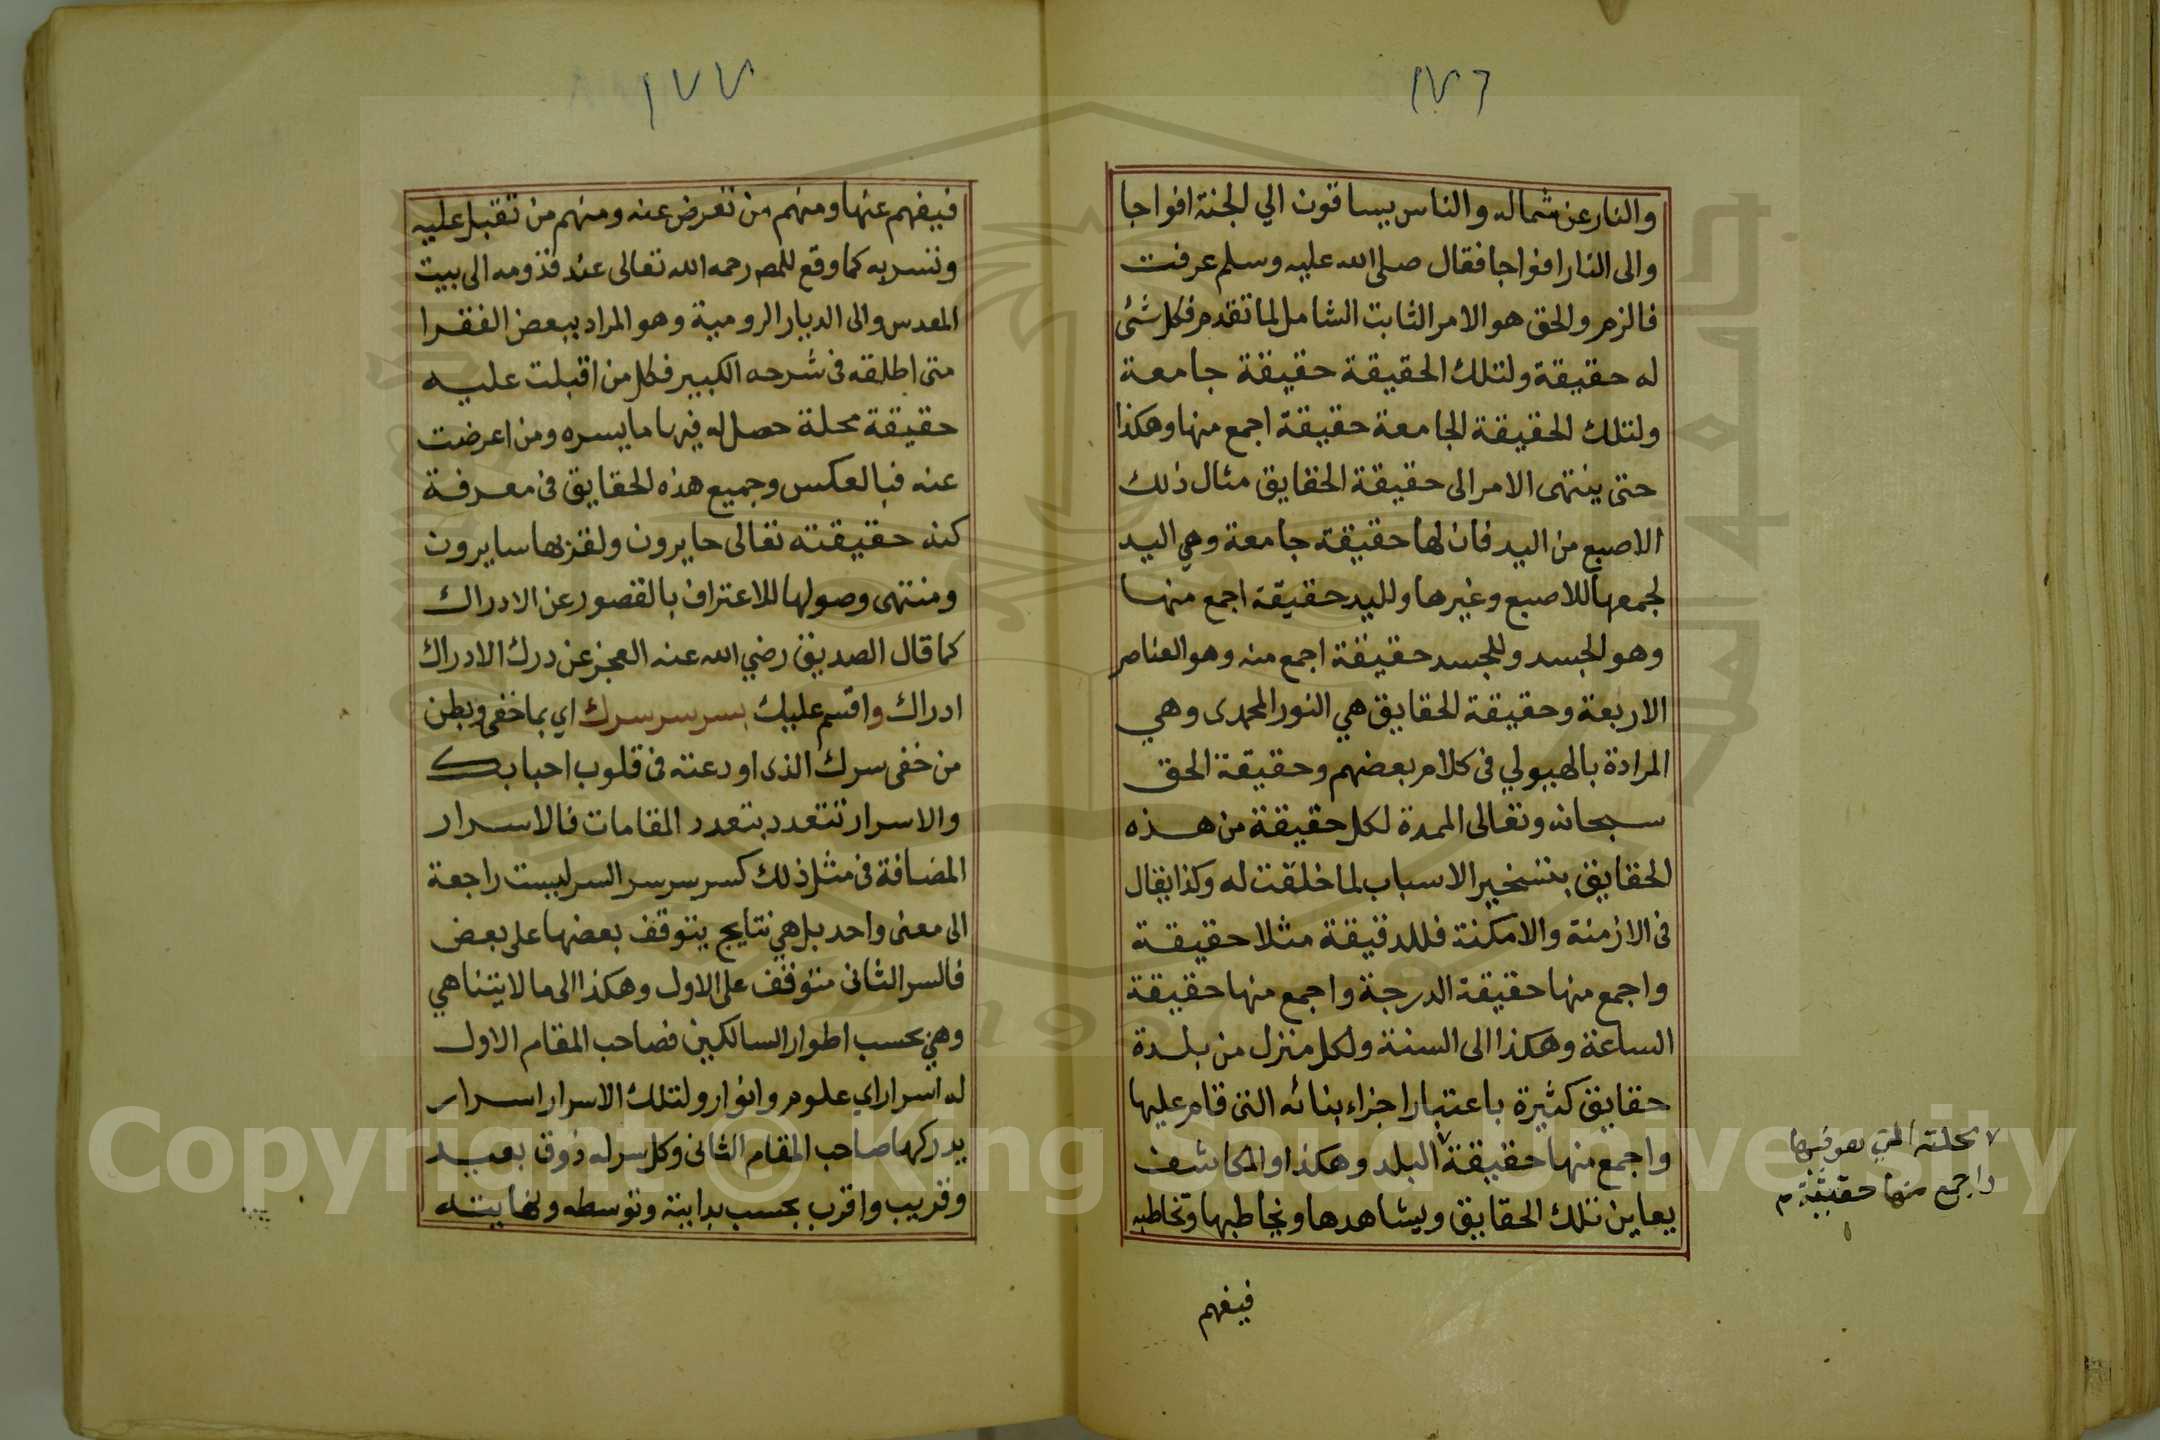 ١٧٦
والنار عن شماله والناس يساقون الي الجنة افواجا
والى النار افواجا فقال صلى الله عليه وسلم عرفت
فالزم والحق هو الامر الثابت الشامل لما تقدم فكل شئ
له حقيقة ولتلك الحقيقة حقيقة جامعة
ولتلك الحقيقة الجامعة حقيقة اجمع منها وهكذا
حتى ينتهى الامر الى حقيقة الحقايق مثال ذلك
الاصبع من اليد فان لها حقيقة جامعة وهي اليد
لجمعها للاصبع وغيرها ولليد حقيقة اجمع منها
وهو الجسد وللجسد حقيقة اجمع منه وهو العناصر
الاربعة وحقيقة الحقايق هي النور المحمدى وهي
المرادة بالهيولي فى كلام بعضهم وحقيقة الحق
سبحانه وتعالى الممدة لكل حقيقة من هذه
الحقايق بتسخير الاسباب لما خلقت له وكذا يقال
فى الازمنة والامكنة فللدقيقة مثلا حقيقة
واجمع منها حقيقة الدرجة واجمع منها حقيقة
الساعة وهكذا الى السنة ولكل منزل من بلدة
حقايق كثيرة باعتبار اجزاء بنائه التى قام عليها
واجمع منها حقيقة ٧ البلد وهكذا والمكاشف
يعاين تلك الحقايق ويشاهدها ويخاطبها وتخاطبه
٧ محلته التي هو فيها
واجمع منها حقيقة م
فيفهم
١٧٧
فيفهم عنها ومنهم من تعرض عنه ومنهم من تقبل عليه
وتسر به كما وقع للمص رحمه الله تعالى عند قدومه الى بيت
المقدس والى الديار الرومية وهو المراد ببعض الفقرا
متى اطلقه فى شرحه الكبير فكل من اقبلت عليه
حقيقة محلة حصل له فيها ما يسره ومن اعرضت
عنه فبالعكس وجميع هذه الحقايق فى معرفة
كنه حقيقته تعالى حايرون ولقربها سايرون
ومنتهى وصولها للاعتراف بالقصور عن الادراك
كما قال الصديق رضي الله عنه العجز عن درك الادراك
ادراك واقسم عليك بسر سر سرك اي بما خفى وبطن
من خفى سرك الذى اودعته فى قلوب احبابك
والاسرار تتعدد بتعدد المقامات فالاسرار
المضافة فى مثل ذلك كسر سر سر السر ليست راجعة
الى معنى واحد بل هي نتايج يتوقف بعضها على بعض
فالسر الثانى متوقف على الاول وهكذا الى ما لا يتناهي
وهي بحسب اطوار السالكين فصاحب المقام الاول
له اسرار اي علوم وانوار ولتلك الاسرار اسرار
يدركها صاحب المقام الثانى وكل سر له ذوق بعيد
وقريب واقرب بحسب بدايته وتوسطه ونهايته
Copyright © King Saud University